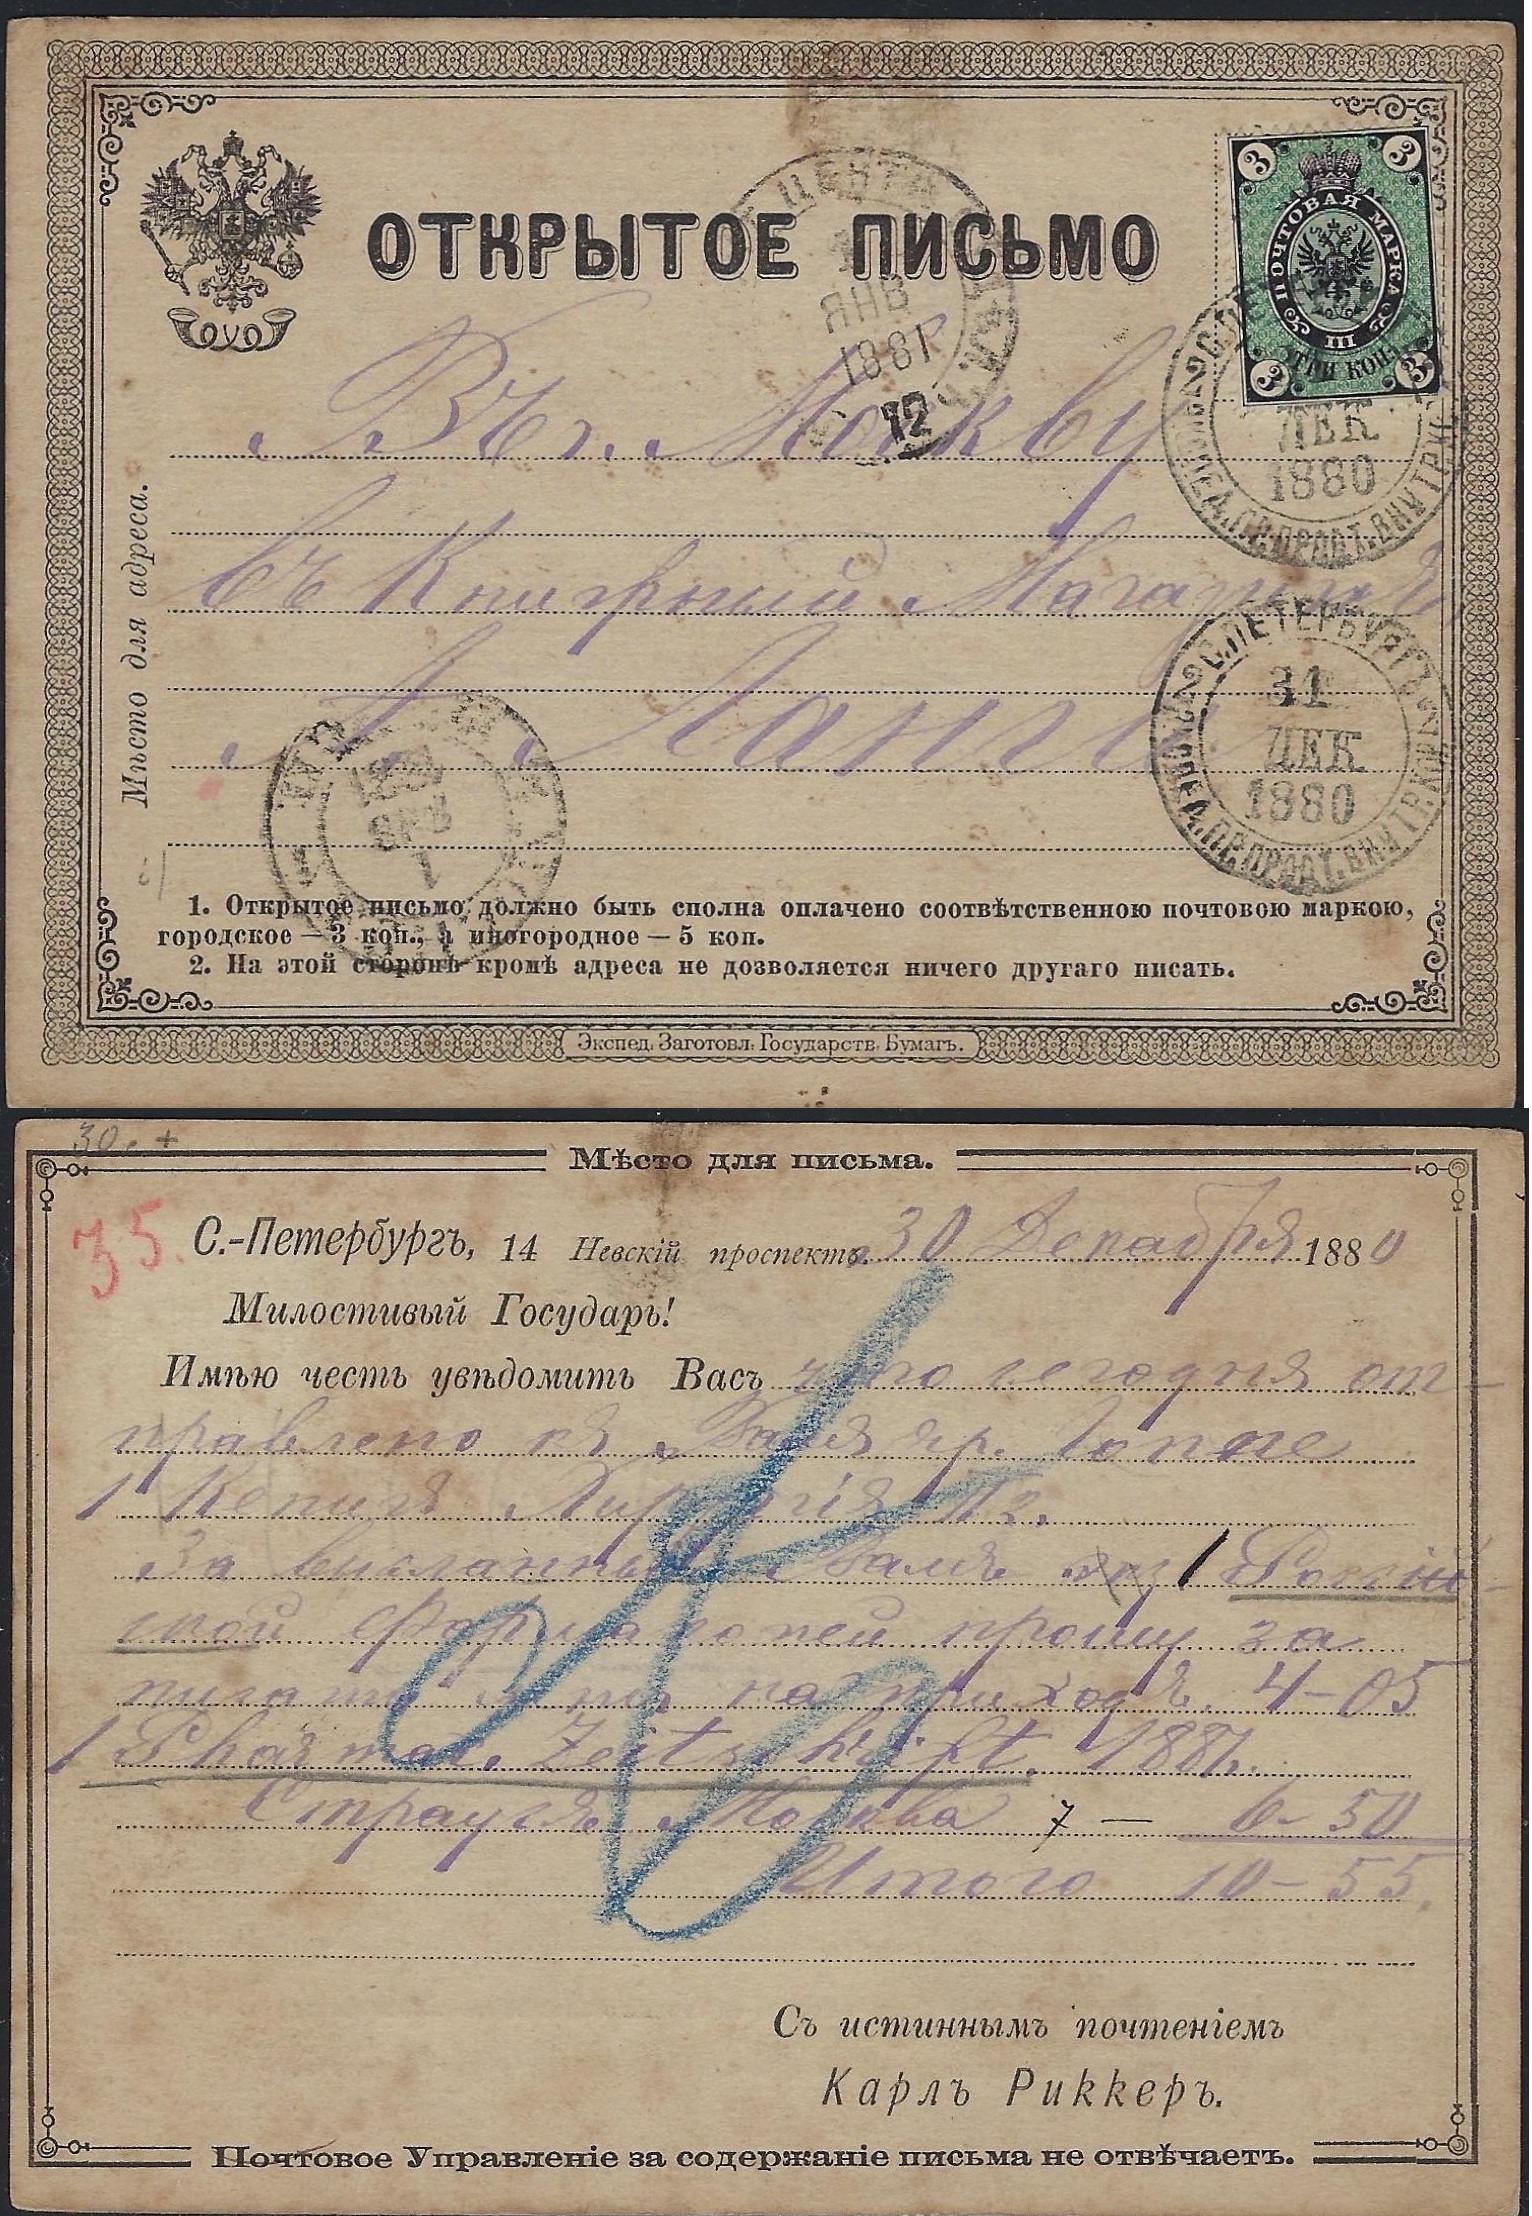 ОТКРЫТОЕ ПИСЬМО
3 3
ПОЧТОВАЯ МАРКА
III
ТРИ КОП.
3 3
ЯНВ
1881
12
ДЕК
1880
Въ г. Москву
въ Книжный Магазинъ
А. Ланга
Мѣсто для адреса.
С.ПЕТЕРБУРГЪ
31
ДЕК
1880
1881
ЯНВ
1
1. Открытое письмо должно быть сполна оплачено соотвѣтственною почтовою маркою,
городское — 3 коп., а иногородное — 5 коп.
2. На этой сторонѣ кромѣ адреса не дозволяется ничего другаго писать.
Экспед. Заготовл. Государств. Бумагъ.
30. +
Мѣсто для письма.
35.
С.-Петербургъ, 14 Невскій проспектъ. 30 Декабря 1880
Милостивый Государь!
Имѣю честь увѣдомить Васъ что сегодня от-
правлено къ Вамъ
1 Хирургія
За высланный Вамъ 1 Россій-
ской Фармакопеи прошу за
на приходъ. 4–05
1 Pharmac. Zeitschrift. 1881.
Москва 7 — 6–50
Итого 10–55.
Съ истиннымъ почтеніемъ
Карлъ Риккеръ.
Почтовое Управленіе за содержаніе письма не отвѣчаетъ.